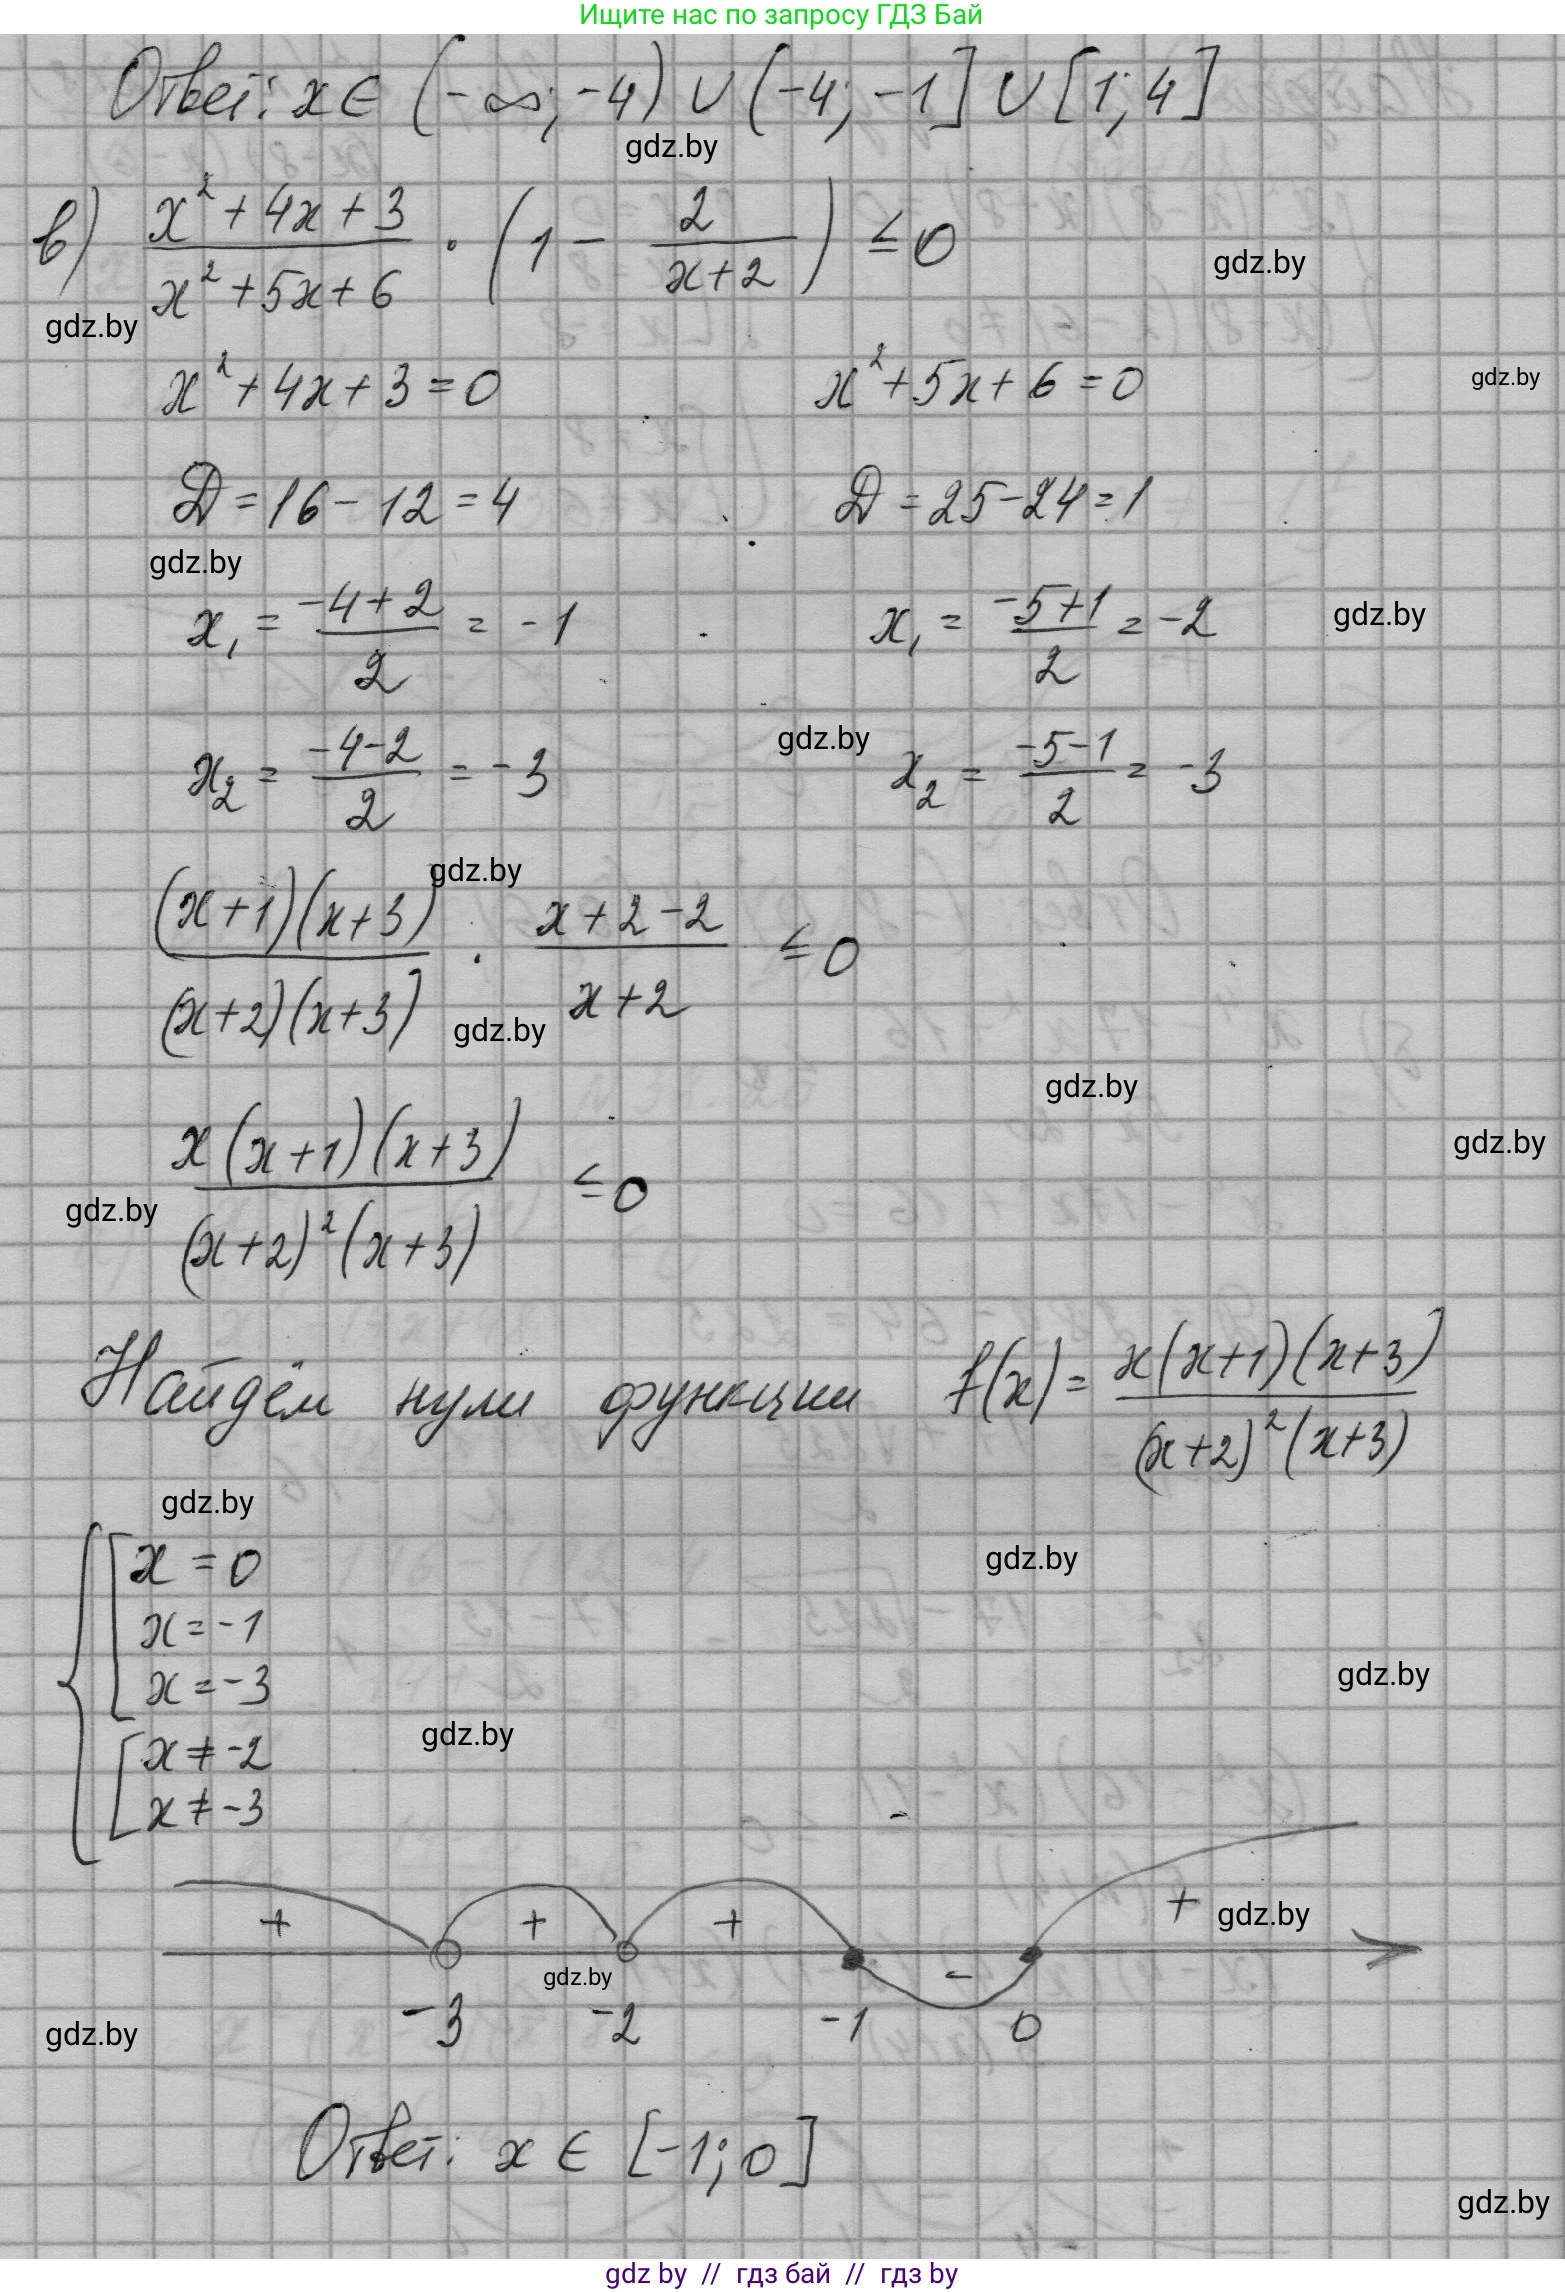 Ищите нас по запросу ГДЗ Бай
Ответ: x ∈ (-∞; -4) ∪ (-4; -1] ∪ [1; 4]
gdz.by
в) (x² + 4x + 3)/(x² + 5x + 6) · (1 - 2/(x+2)) ≤ 0
gdz.by
gdz.by
x² + 4x + 3 = 0 x² + 5x + 6 = 0
gdz.by
D = 16 - 12 = 4 D = 25 - 24 = 1
gdz.by
x₁ = (-4+2)/2 = -1 x₁ = (-5+1)/2 = -2
gdz.by
gdz.by
x₂ = (-4-2)/2 = -3 x₂ = (-5-1)/2 = -3
gdz.by
(x+1)(x+3)/((x+2)(x+3)) · (x+2-2)/(x+2) ≤ 0
gdz.by
gdz.by
gdz.by
x(x+1)(x+3)/((x+2)²(x+3)) ≤ 0
gdz.by
Найдём нули функции f(x) = x(x+1)(x+3)/((x+2)²(x+3))
gdz.by
x = 0
gdz.by
x = -1
x = -3
gdz.by
gdz.by
x ≠ -2
x ≠ -3
+ + + - +
gdz.by
gdz.by
-3 -2 -1 0
gdz.by
Ответ: x ∈ [-1; 0]
gdz.by
gdz by // гдз бай // gdz by